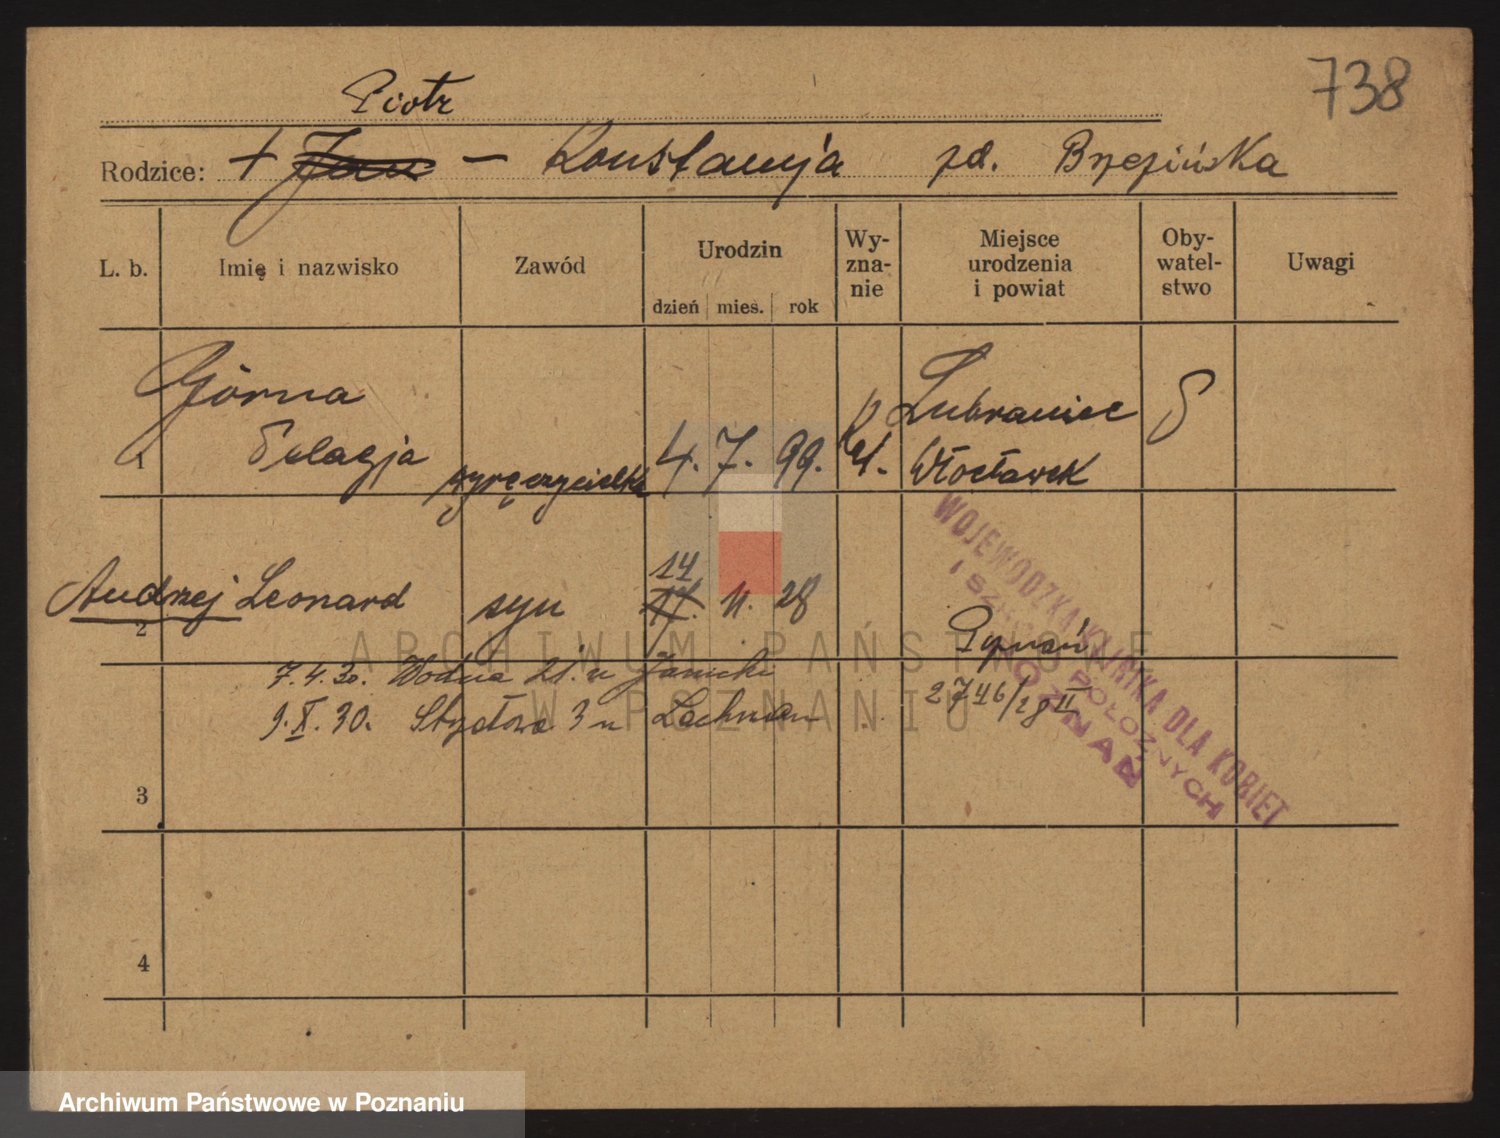 738
Piotr
Rodzice: + Jan - Konstancja zd. Brzezińska
L. b. Imię i nazwisko Zawód Urodzin dzień mies. rok Wy-zna-nie Miejsce urodzenia i powiat Oby-watel-stwo Uwagi
Górna Lubraniec
1 Pelagja 4. 7. 99. Włocławek
14
2 Andrzej Leonard syn 17. 11. 28
Poznań
7.4.30. Wodna 21. u Janicki
2746/28 II
9.X.30. Stzałowa 3 u Lachman
WOJEWÓDZKA KLINIKA DLA KOBIET
I SZKOŁA POŁOŻNYCH
POZNAŃ
3
4
ARCHIWUM PAŃSTWOWE
W POZNANIU
Archiwum Państwowe w Poznaniu